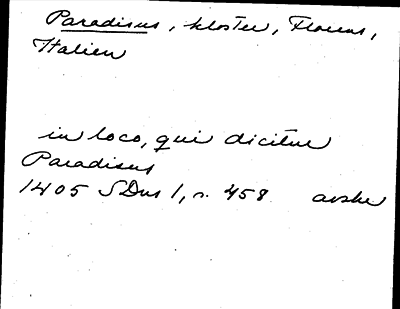 Paradisus, kloster, Florens,
Italien
in loco, qui dicitur
Paradisus
1405 SDns 1, n. 458 avskr